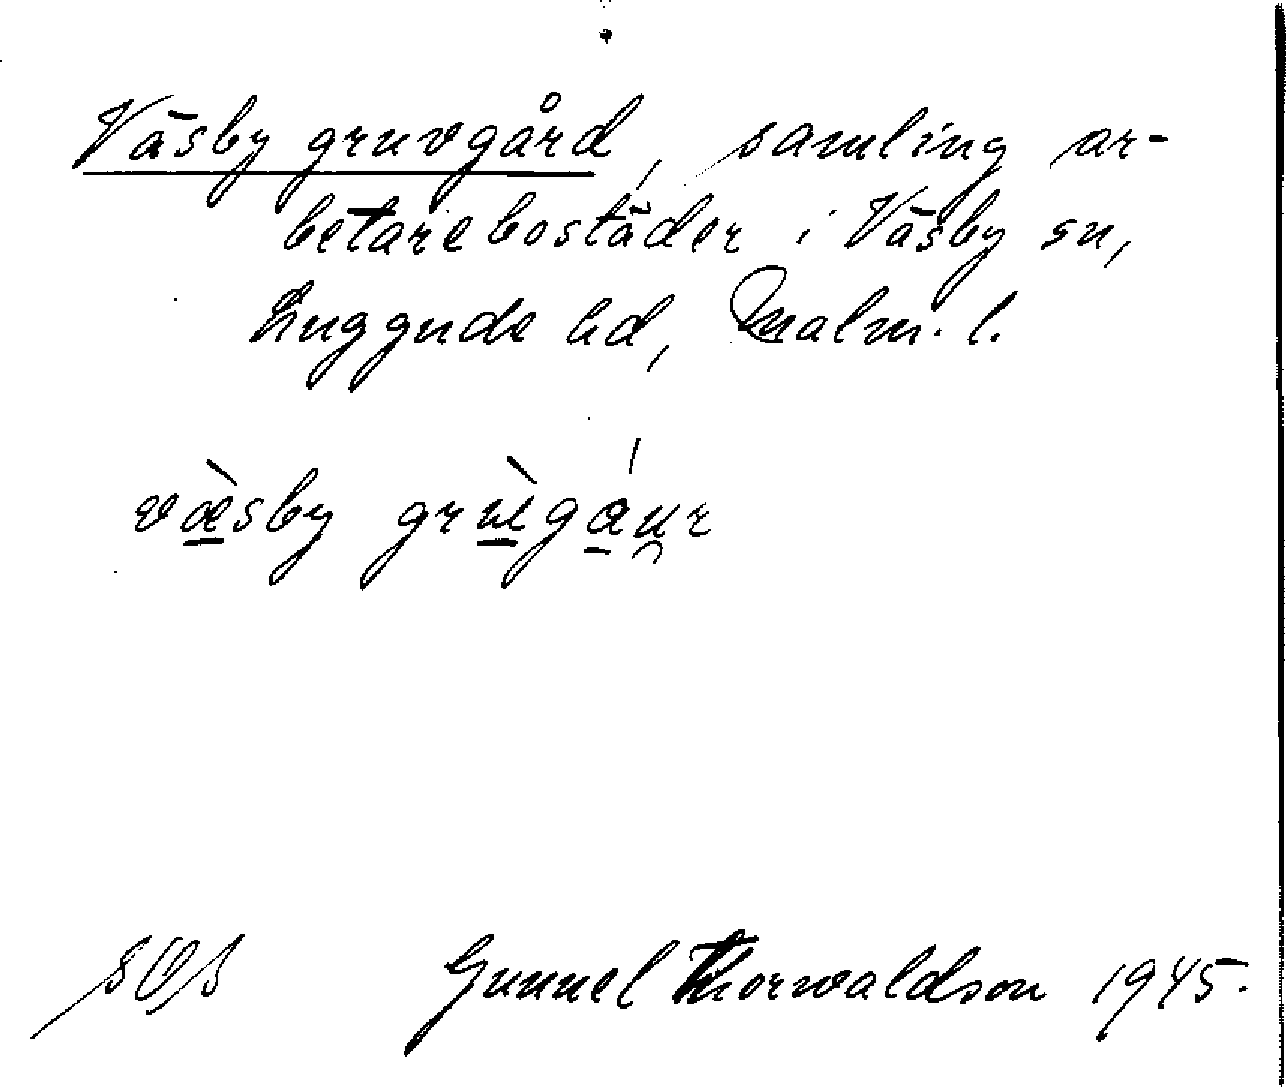 Väsby gruvgård, samling ar-
betarebostäder i Väsby sn,
Luggude hd, Malm. l.
væ̀sby grùgáur
SOS Gunnel Thorwaldson 1945.